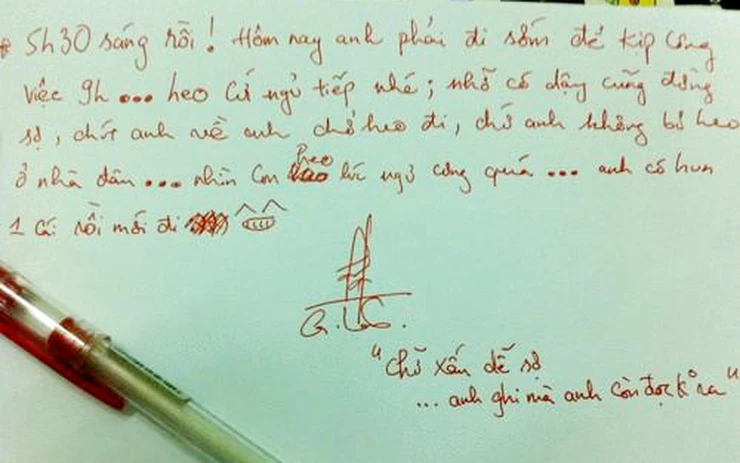 5h30 sáng rồi! Hôm nay anh phải đi sớm để kịp công
việc 9h ... heo cứ ngủ tiếp nhé; nhỡ có dậy cũng đừng
sợ, chút anh về anh chở heo đi, chứ anh không bỏ heo
ở nhà đâu ... nhìn con heo lúc ngủ cưng quá ... anh có hun
1 cái rồi mới đi
"Chữ xấu dễ sợ
... anh ghi mà anh còn đọc k° ra"